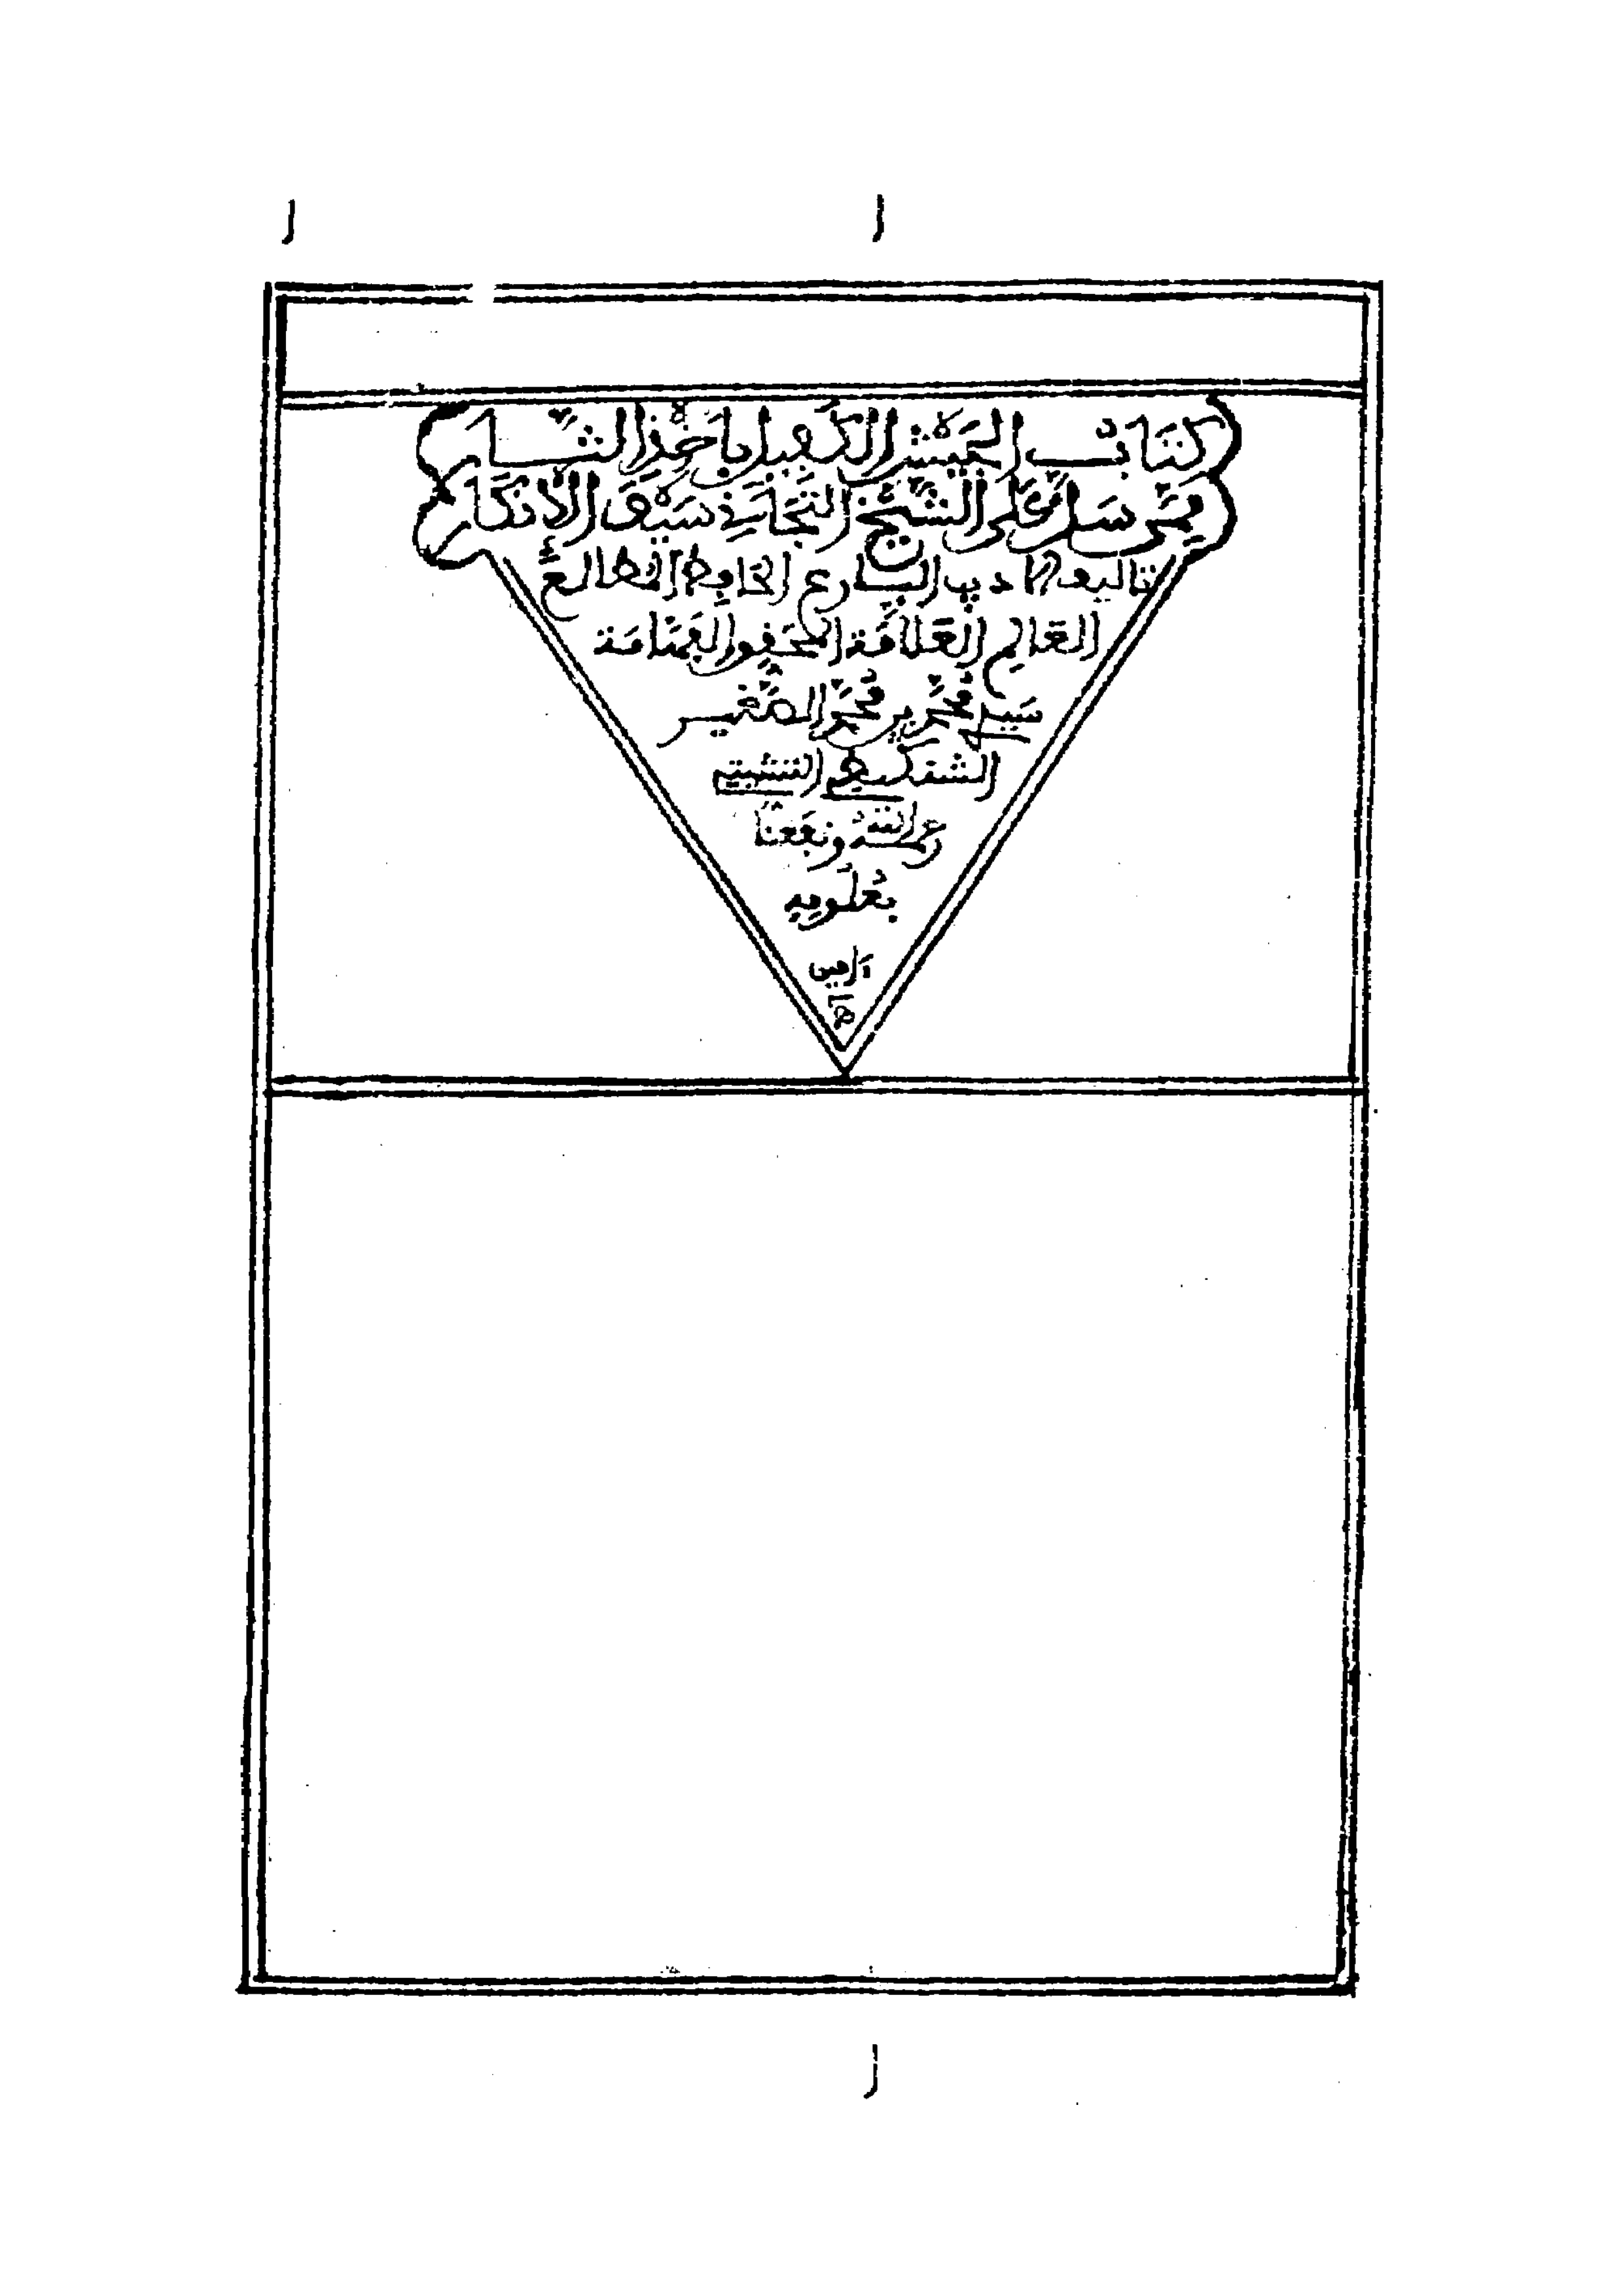 كتاب الجيش الكفيل باخذ الثار
ممن سل على الشيخ التجاني سيف الانكار
تاليف الاديب البارع الحافظ المطالع
العالم العلامة المحقق الفهامة
سيدي محمد بن محمد الصغير
الشنكيطي التشيتي
رحمه الله ونفعنا
بعلومه
ءامين